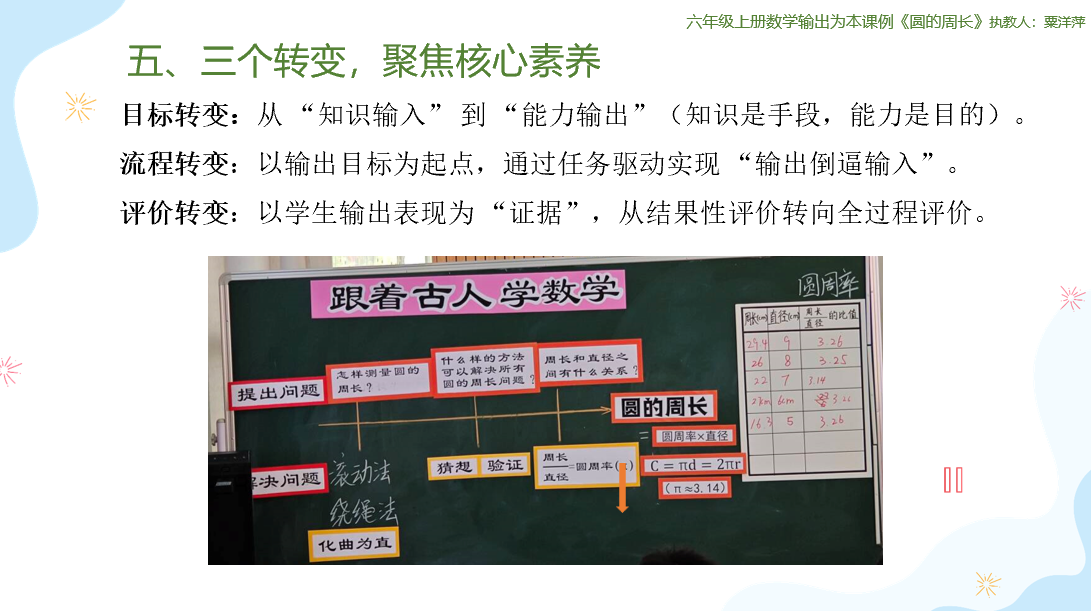 六年级上册数学输出为本课例《圆的周长》执教人：粟洋萍
五、三个转变，聚焦核心素养
目标转变：从“知识输入”到“能力输出”（知识是手段，能力是目的）。
流程转变：以输出目标为起点，通过任务驱动实现“输出倒逼输入”。
评价转变：以学生输出表现为“证据”，从结果性评价转向全过程评价。
跟着古人学数学
圆周率
周长(cm) 直径(cm) 周长/直径 的比值
29.4 9 3.26
26 8 3.25
22 7 3.14
6cm
16.3 5 3.26
提出问题
怎样测量圆的
周长？
什么样的方法
可以解决所有
圆的周长问题？
周长和直径之
间有什么关系？
圆的周长
=圆周率×直径
C=πd=2πr
(π≈3.14)
解决问题
滚动法
绕绳法
化曲为直
猜想 验证
周长
直径
=圆周率(